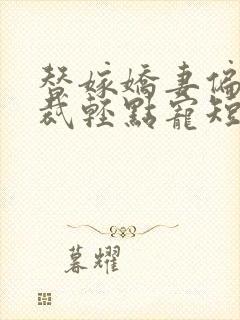 替嫁嬌妻偏
裁輕點寵短
暮耀